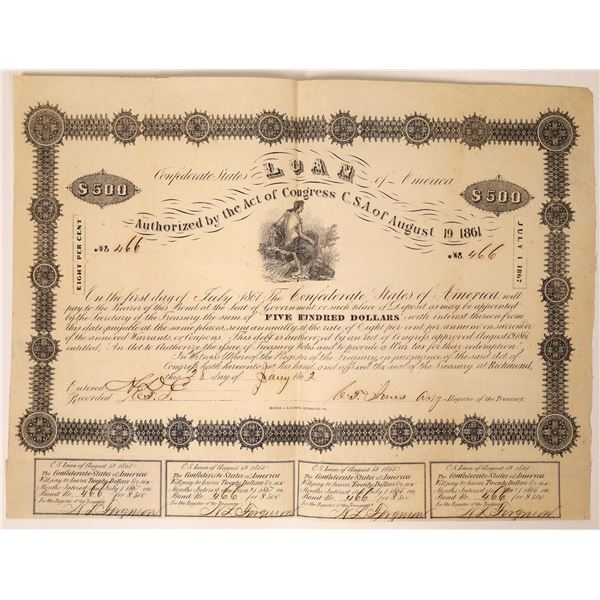 LOAN
Confederate States of America
$500 $500
Authorized by the Act of Congress C.S.A. of August 19 1861
No. 466 No. 466
EIGHT PER CENT
JULY 1 1867
On the first day of July 1867, The Confederate States of America will
pay to the Bearer of this Bond at the Seat of Government or such place of Deposit as may be appointed
by the Secretary of the Treasury the sum of FIVE HUNDRED DOLLARS with interest thereon from
this date payable at the same places, semi annually at the rate of Eight per cent per annum on surrender
of the annexed Warrants or Coupons. This debt is authorized by an Act of Congress approved August 19, 1861
entitled, An Act to Authorize the issue of Treasury Notes and to provide a War tax for their redemption.
In Witness Whereof the Register of the Treasury in pursuance of the said Act of
Congress hath hereunto set his hand and affixed the seal of the Treasury at Richmond,
this 3d day of Jany 1862
Entered
Recorded
C. T. Jones actg Register of the Treasury.
C.S. Loan of August 19 1861
The Confederate States of America
Will pay to bearer Twenty Dollars for six
Months Interest due July 1 1867 on
Bond No. 466 for $500
For the Register of the Treasury
H L Ferguson
C.S. Loan of August 19 1861
The Confederate States of America
Will pay to bearer Twenty Dollars for six
Months Interest due Jany 1 1867 on
Bond No. 466 for $500
For the Register of the Treasury
H L Ferguson
C.S. Loan of August 19 1861
The Confederate States of America
Will pay to bearer Twenty Dollars for six
Months Interest due July 1 1866 on
Bond No. 466 for $500
For the Register of the Treasury
H L Ferguson
C.S. Loan of August 19 1861
The Confederate States of America
Will pay to bearer Twenty Dollars for six
Months Interest due Jany 1 1866 on
Bond No. 466 for $500
For the Register of the Treasury
H L Ferguson